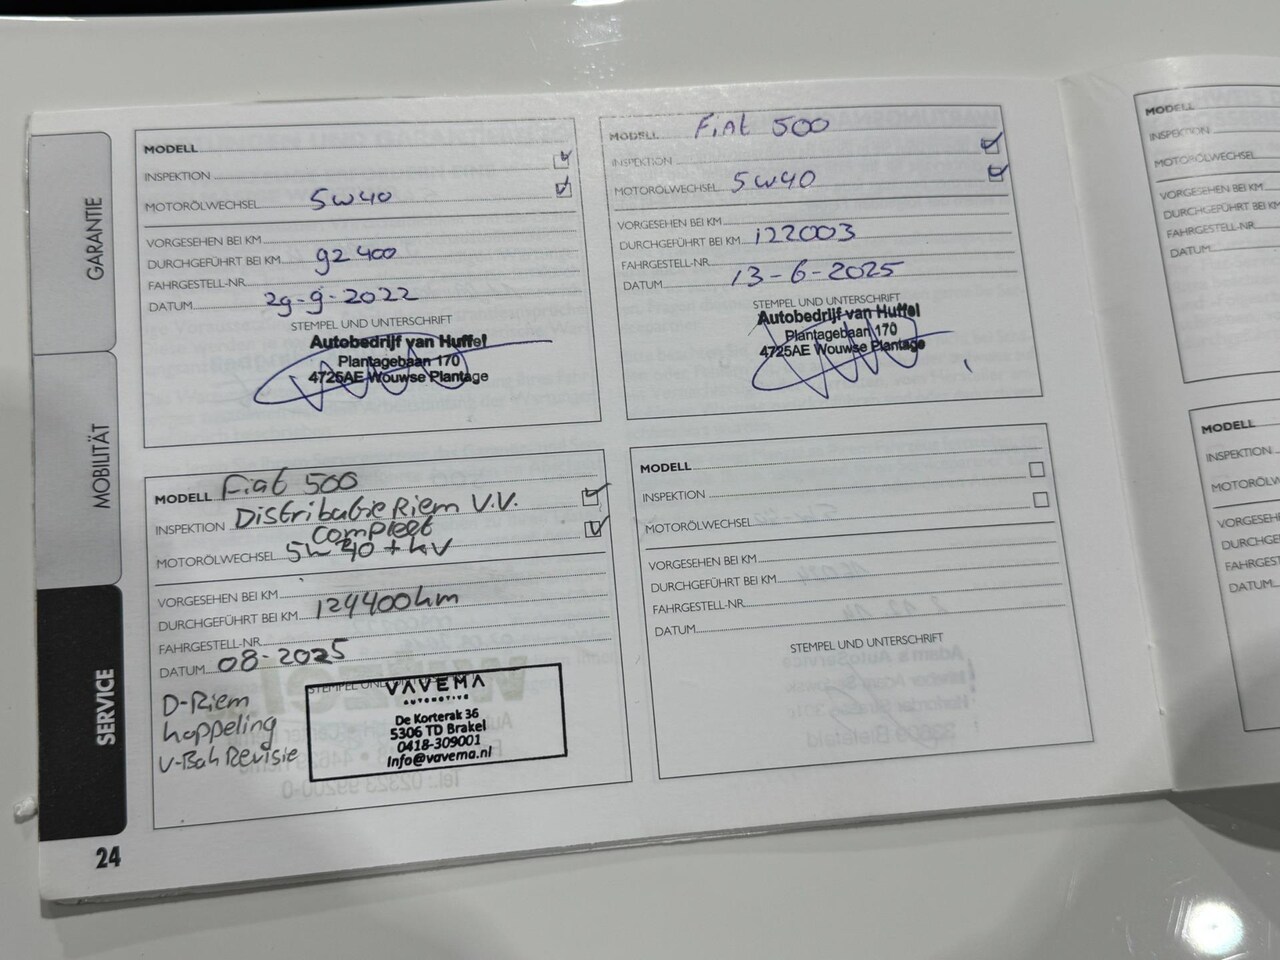 GARANTIE
MOBILITÄT
SERVICE
MODELL
INSPEKTION
MOTORÖLWECHSEL 5W40
VORGESEHEN BEI KM
DURCHGEFÜHRT BEI KM 92400
FAHRGESTELL-NR.
DATUM 29-9-2022
STEMPEL UND UNTERSCHRIFT
Autobedrijf van Huffel
Plantagebaan 170
4725AE Wouwse Plantage
MODELL Fiat 500
INSPEKTION
MOTORÖLWECHSEL 5W40
VORGESEHEN BEI KM
DURCHGEFÜHRT BEI KM 122003
FAHRGESTELL-NR.
DATUM 13-6-2025
STEMPEL UND UNTERSCHRIFT
Autobedrijf van Huffel
Plantagebaan 170
4725AE Wouwse Plantage
MODELL Fiat 500
INSPEKTION Distributie Riem V.V.
Compleet
MOTORÖLWECHSEL 5W40 + kV
VORGESEHEN BEI KM
DURCHGEFÜHRT BEI KM 124400km
FAHRGESTELL-NR.
DATUM 08-2025
STEMPEL UND
D-Riem
koppeling
V-Bak Revisie
VAVEMA
AUTOMOTIVE
De Korterak 36
5306 TD Brakel
0418-309001
Info@vavema.nl
MODELL
INSPEKTION
MOTORÖLWECHSEL
VORGESEHEN BEI KM
DURCHGEFÜHRT BEI KM
FAHRGESTELL-NR.
DATUM
STEMPEL UND UNTERSCHRIFT
24
MODELL
INSPEKTION
MOTORÖLWECHSEL
VORGESEHEN BEI KM
DURCHGEFÜHRT BEI KM
FAHRGESTELL-NR.
DATUM
MODELL
INSPEKTION
MOTORÖLWECHS
VORGESEHEN
DURCHGE
FAHRGEST
DATUM